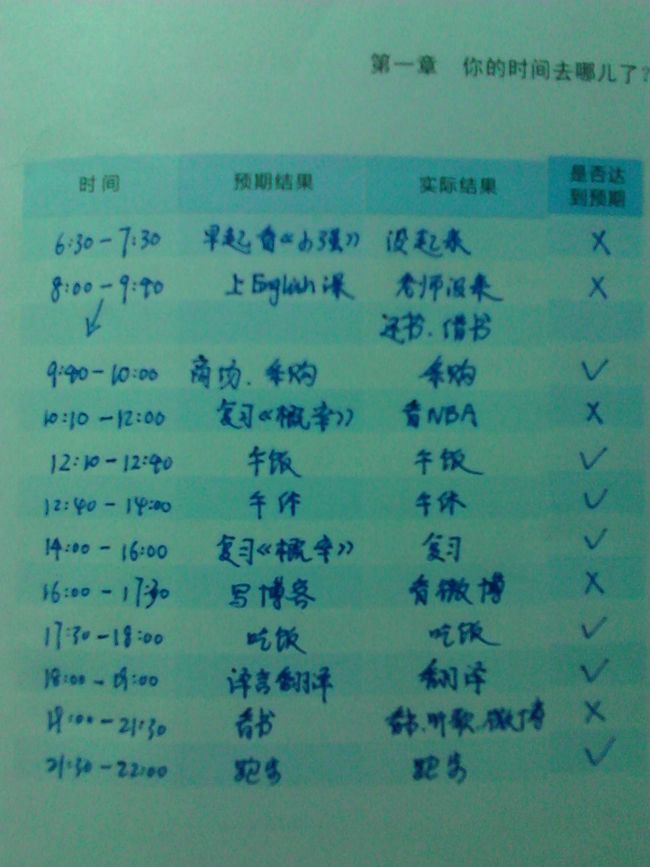 第一章 你的时间去哪儿了？
时间 预期结果 实际结果 是否达到预期
6:30-7:30 早起看《小强》 没起来 X
8:00-9:40 上English课 老师没来 X
↙ 还书、借书
9:40-10:00 商场、采购 采购 ✓
10:10-12:00 复习《概率》 看NBA X
12:10-12:40 午饭 午饭 ✓
12:40-14:00 午休 午休 ✓
14:00-16:00 复习《概率》 复习 ✓
16:00-17:30 写博客 看微博 X
17:30-18:00 吃饭 吃饭 ✓
18:00-19:00 译言翻译 翻译 ✓
19:00-21:30 看书 看书、听歌、微博 X
21:30-22:00 跑步 跑步 ✓